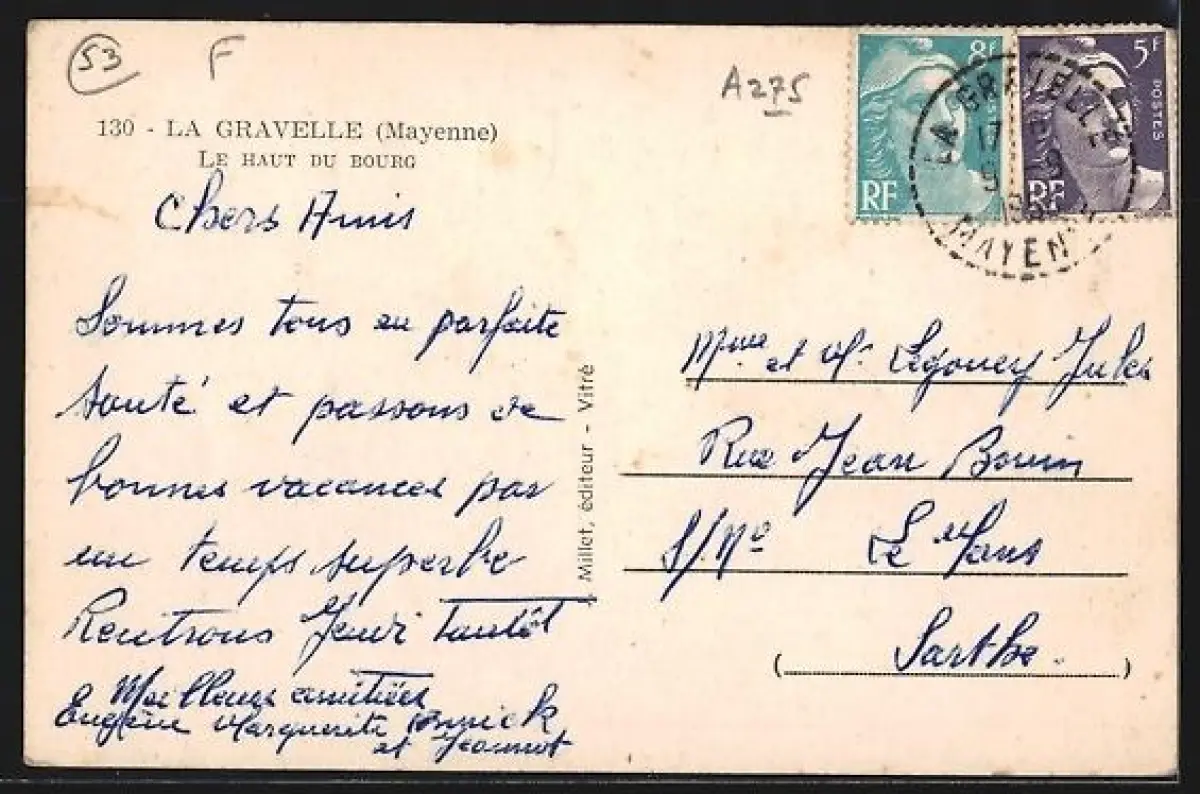 53
F
A275
130 - LA GRAVELLE (Mayenne)
LE HAUT DU BOURG
8F
RF
5F
POSTES
RF
LA GRAVELLE
17
9 9
MAYENNE
Chers Amis
Sommes tous en parfaite
santé et passons de
bonnes vacances par
un temps superbe
Rentrons Jeudi tantôt
Meilleures amitiées
Eugène Marguerite
et Jeannot
Millet, éditeur - Vitré
Mme et Mr Legouey Jules
Rue Jean Bouin
S/No Le Mans
Sarthe.
( )